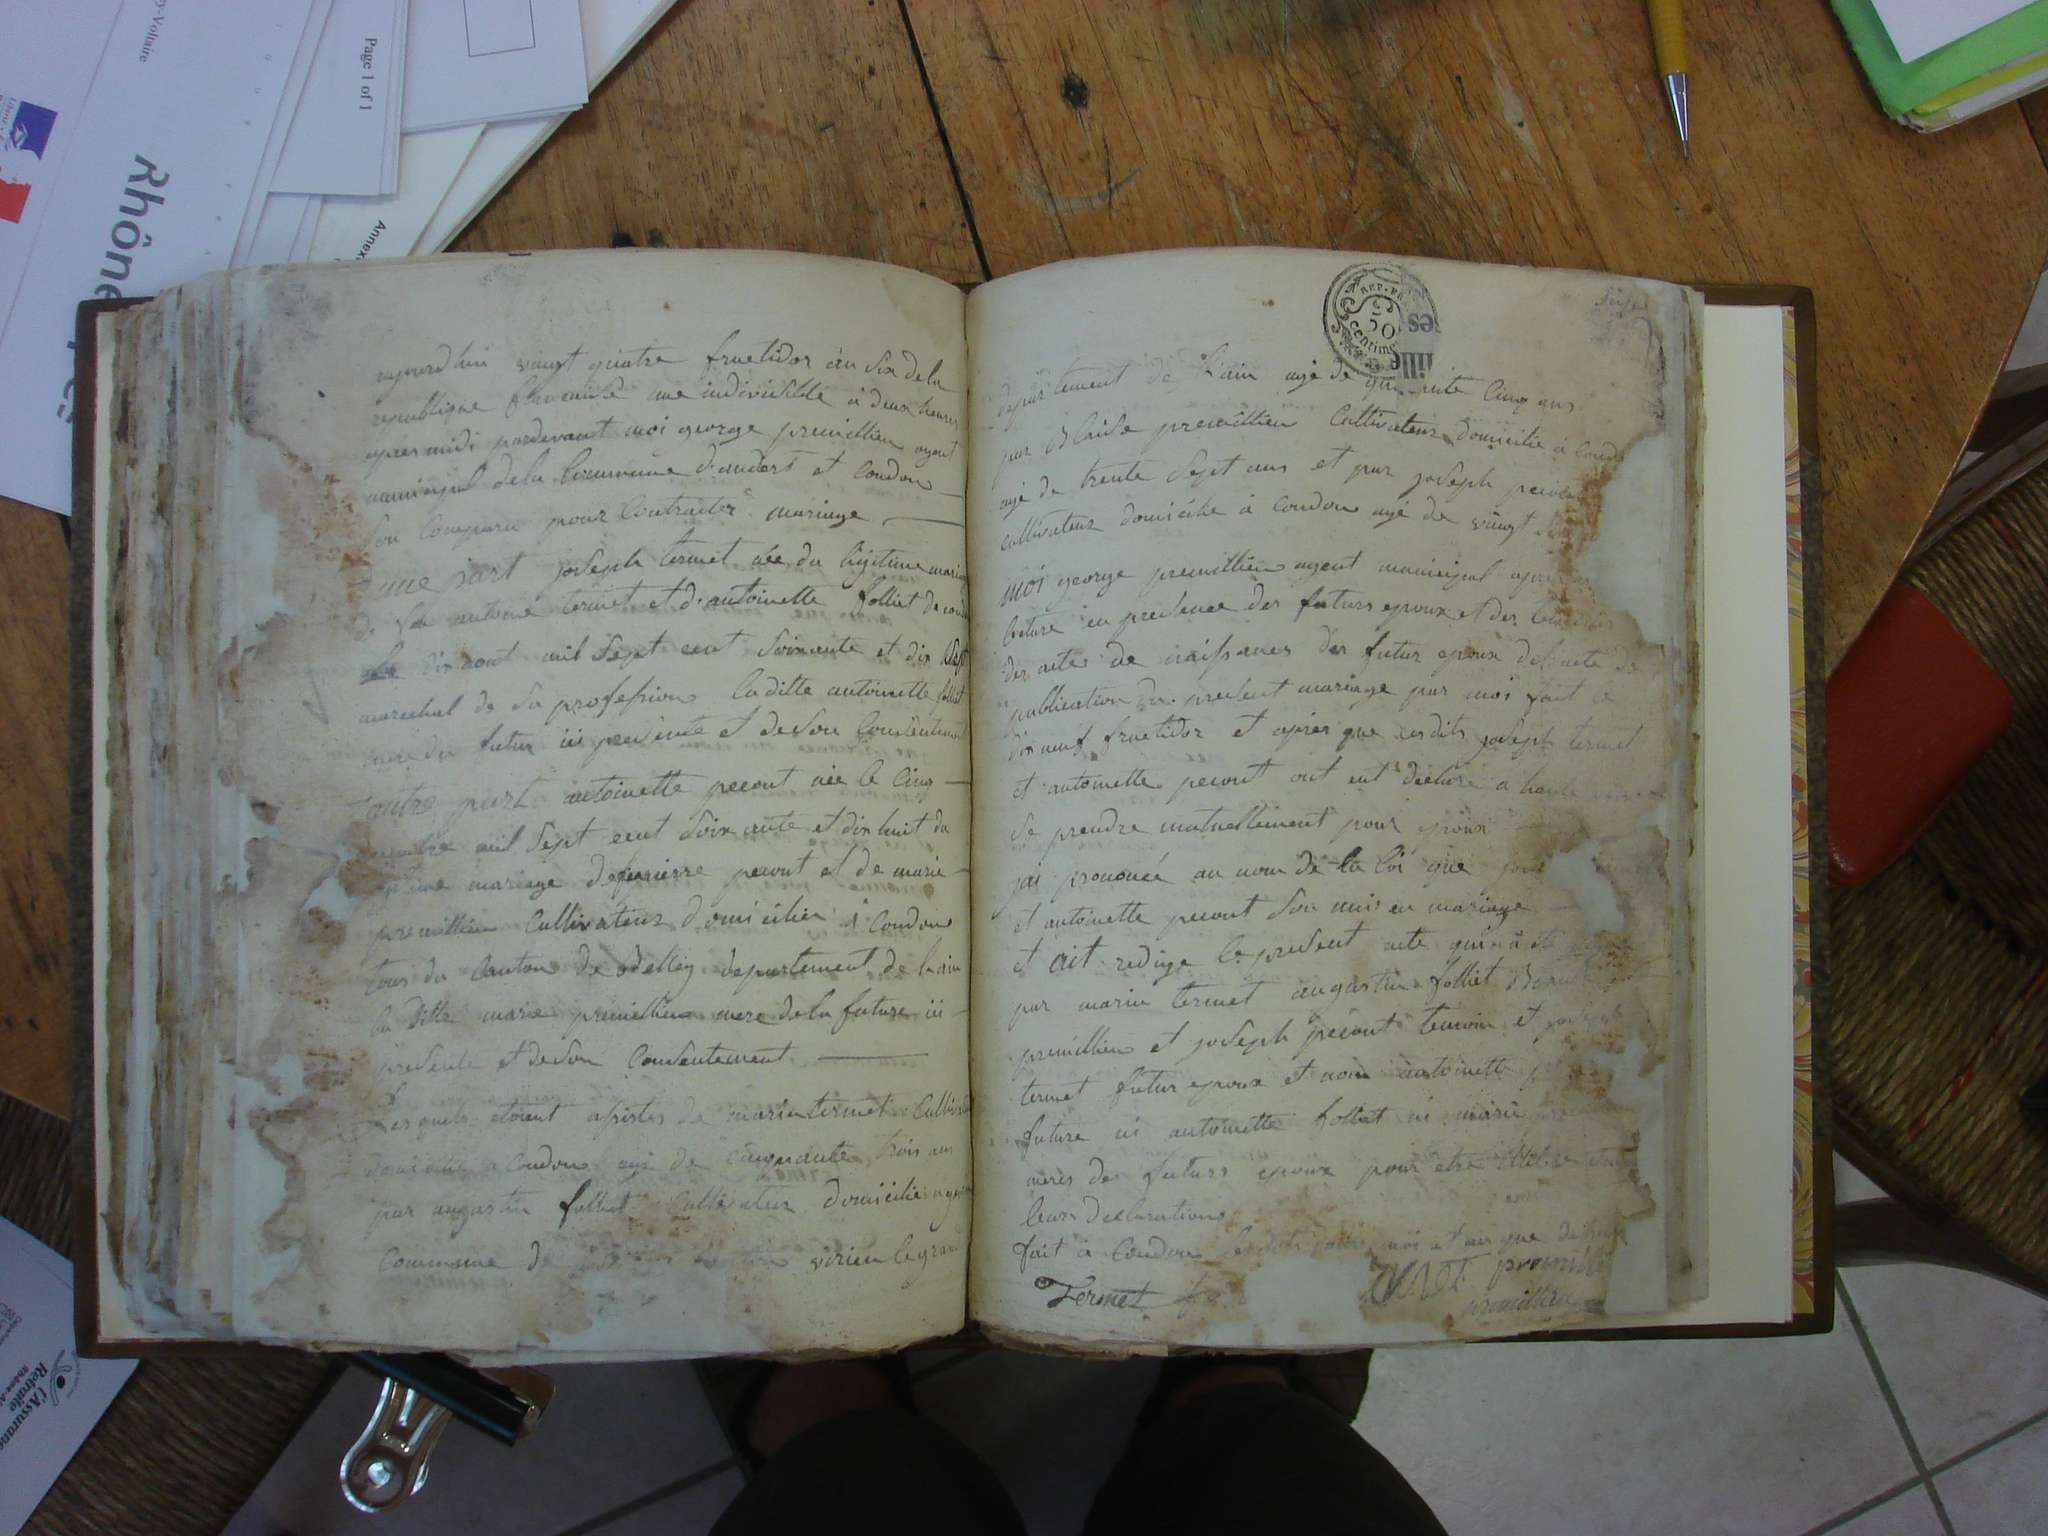 y-Voltaire
Page 1 of 1
Rhône
Annex
aujourd'hui vingt quatre fructidor an Six de la
republique francaise une indivisible à deux heures
apres midi pardevant moi george premillieu agent
municipal de la Commune d'andert et Condon
Son Comparu pour Contracter mariage
une part joseph termet née du légitime mariage
de feu antoine termet et d'antoinette folliet de
dix aout mil Sept cent Soixante et dix Sept
marechal de Sa profession laditte antoinette folliet
mere du futur ici presente et de Son Consentement
autre part antoinette pecout née le Cinq
mil Sept cent Soix ante et dix huit du
mariage de pierre pecout et de marie
premillieu Cultivateur domicilié à Condon
tous du Canton de Belley departement de l'ain
la ditte marie premillieu mere de la future ici
presente et de Son Consentement
Lesquels etoient assistes de marin termet Cultivat
domicilié a Condon agé de cinquante trois ans
par augustin folliet Cultivateur domicilié
Commune virieu le grand
REP. FRA
50
centime
departement de l'ain agé de quarente Cinq ans
par Blaise premillieu Cultivateur domicilié à Cond
agé de trente Sept ans et par joseph pecout
cultivateur domicilié à Condon agé de vingt
moi george premillieu agent municipal apres
lecture en presence des futurs epoux et des temoins
des actes de naissances des futur epoux de l'acte de
publication du present mariage par moi fait le
dix neuf fructidor et après que lesdits joseph termet
et antoinette pecout ont eut declaré a haute voix
Se prendre mutuellement pour epoux
jai prononcé au nom de la loi que
et antoinette pecout Son unis en mariage
et ait redigé le present acte qui a été
par marin termet augustin folliet
premillieu et joseph pecout temoin et joseph
termet futur epoux et non antoinette
future ni antoinette folliet ni marie
meres des futurs epoux pour etre illitere
leurs declarations
fait à Condon moi et an que dessus
Termet premillieu
premillieu
l'Assurance
Retraite